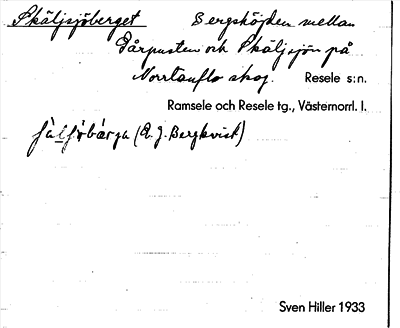 Skäljsjöberget Bergshöjden mellan
och Skäljsjön på
skog. Resele s:n.
Ramsele och Resele tg., Västernorrl. l.
(A. J. Bergkvist)
Sven Hiller 1933